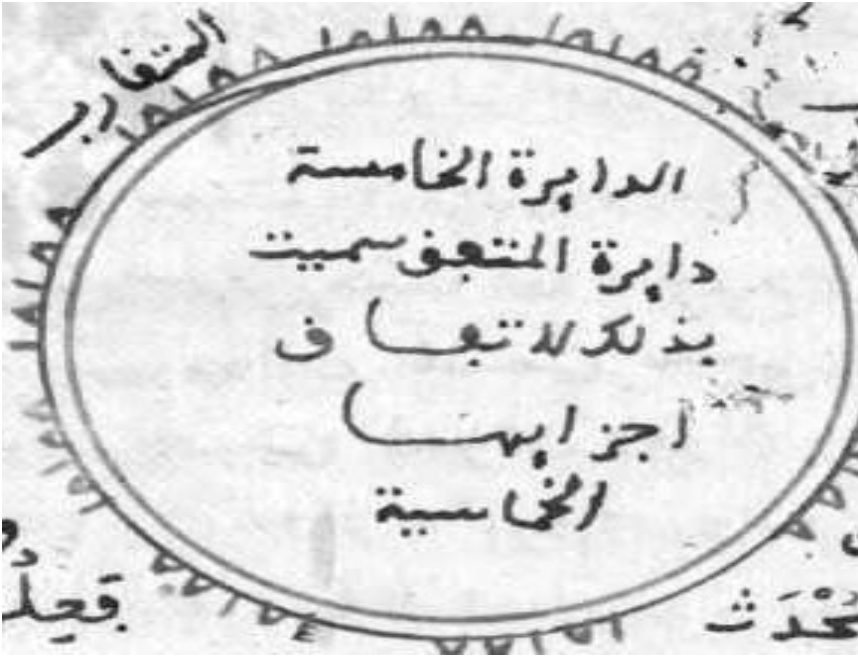 المتقارب
الدايرة الخامسة
دايرة المتفق سميت
بذلك لاتفاق
اجزايها
الخماسية